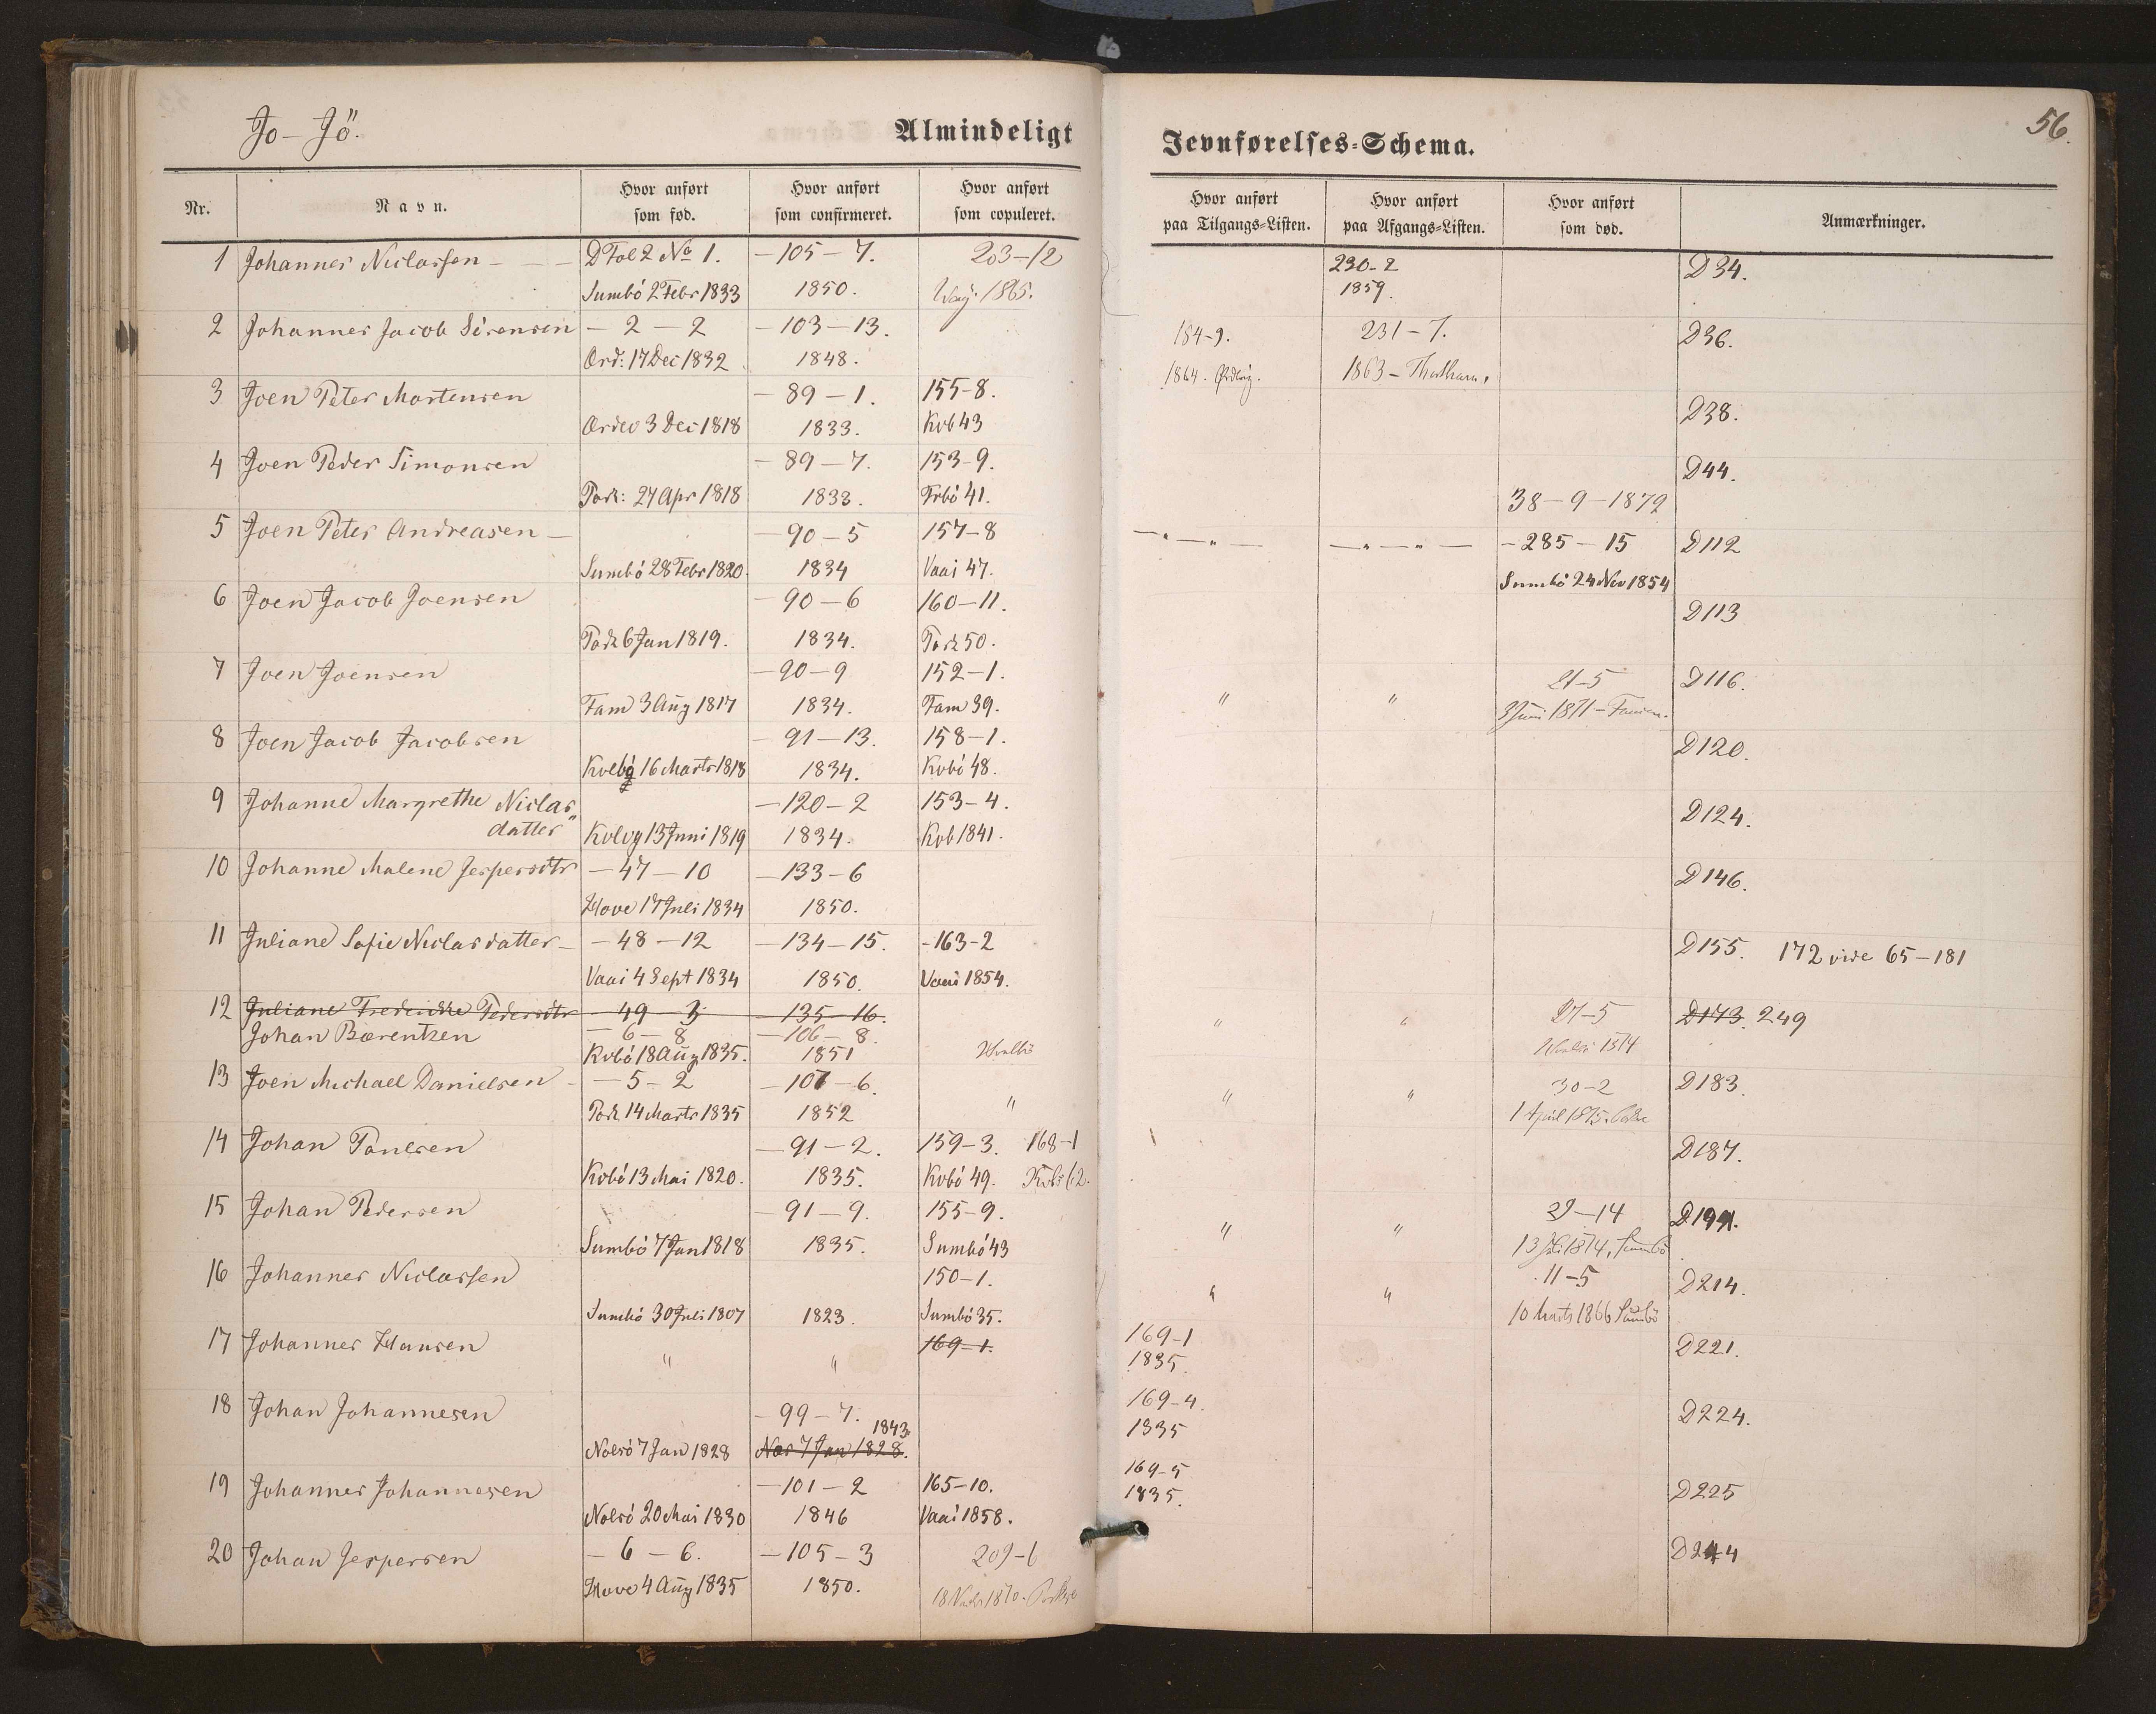 Jo - Jö.
Almindeligt
Jevnførelses-Schema.
56.
Nr.
Navn.
Hvor anført som fød.
Hvor anført som confirmeret.
Hvor anført som copuleret.
Hvor anført paa Tilgangs-Listen.
Hvor anført paa Afgangs-Listen.
Hvor anført som død.
Anmærkninger.
1 Johannes Niclassen - - - D Fol 2 No 1. - 105 - 7. 203-12 230-2 D34.
Sumbö 2 Febr 1833 1850. 1865. 1859.
2 Johannes Jacob Sörensen - 2 - 2 - 103 - 13. 184-9. 231 - 7. D36.
Ord: 17 Dec 1832 1848. 1864. 1863 - Thorshavn.
3 Joen Peter Mortensen - 89 - 1. 155-8. D38.
Ordev 3 Dec 1818 1833. Kvb 43
4 Joen Peder Simonsen - 89 - 7. 153-9. D44.
Pork: 27 Apr 1818 1833. Frbö 41. 38 - 9 - 1872
5 Joen Peter Andreasen - - 90 - 5 157-8 - " - " - - " - " - - 285 - 15 D112
Sumbö 28 Febr 1820. 1834 Vaai 47. Sumbö 24 Nov 1854
6 Joen Jacob Joensen - 90 - 6 160-11. D113
Pork 6 Jan 1819. 1834. Pork 50.
7 Joen Joensen - 90 - 9 152-1. " " 21-5 D116.
Fam 3 Aug 1817 1834. Fam 39. 3 Juni 1871 - Famien.
8 Joen Jacob Jacobsen - 91 - 13. 158-1. D120.
Kvlbg 16 Marts 1818 1834. Kvbö 48.
9 Johanne Margrethe Niclas" - 120 - 2 153-4. D124.
datter Kvlvg 13 Juni 1819 1834. Kvb 1841.
10 Johanne Malene Jespersdtr - 47 - 10 - 133 - 6 D146.
Hove 17 Juli 1834 1850.
11 Juliane Sofie Niclasdatter - - 48 - 12 - 134 - 15. - 163-2 D155. 172 vide 65-181
Vaai 4 Sept 1834 1850. Vaai 1854.
12 Juliane Fredericke Pedersdtr - 49 - 3 - 135 - 16. " " 27-5 D173. 249
Johan Bærentzen - 6 - 8 - 106 - 8.
Kvbö 18 Aug 1835. 1851 Hvalbö 1874
13 Joen Michael Danielsen - - 5 - 2 - 107 - 6. " " " 30-2 D183.
Pork 14 Marts 1835 1852 1 April 1875.
14 Johan Poulsen - 91 - 2. 159-3. 168-1 D187.
Kvbö 13 Mai 1820. 1835. Kvbö 49. Kvbö 62.
15 Johan Pedersen - 91 - 9. 155-9. " " 29-14 D191.
Sumbö 7 Jan 1818 1835. Sumbö 43 13 Juli 1874, Sumbö
16 Johannes Niclassen 150-1. " " 11-5 D214.
Sumbö 30 Juli 1807 1823. Sumbö 35. 10 Marts 1866 Sumbö
17 Johannes Hansen " " 169-1. 169-1 D221.
1835.
18 Johan Johannesen - 99 - 7. 169-4. D224.
1843.
Nolsö 7 Jan 1828 Nos 7 Jan 1828. 1835
19 Johannes Johannesen - 101 - 2 165-10. 169-5 D225
Nolsö 20 Mai 1830 1846 Vaai 1858. 1835.
20 Johan Jespersen - 6 - 6. - 105 - 3 209-6 D244
Hove 4 Aug 1835 1850. 18 1870.